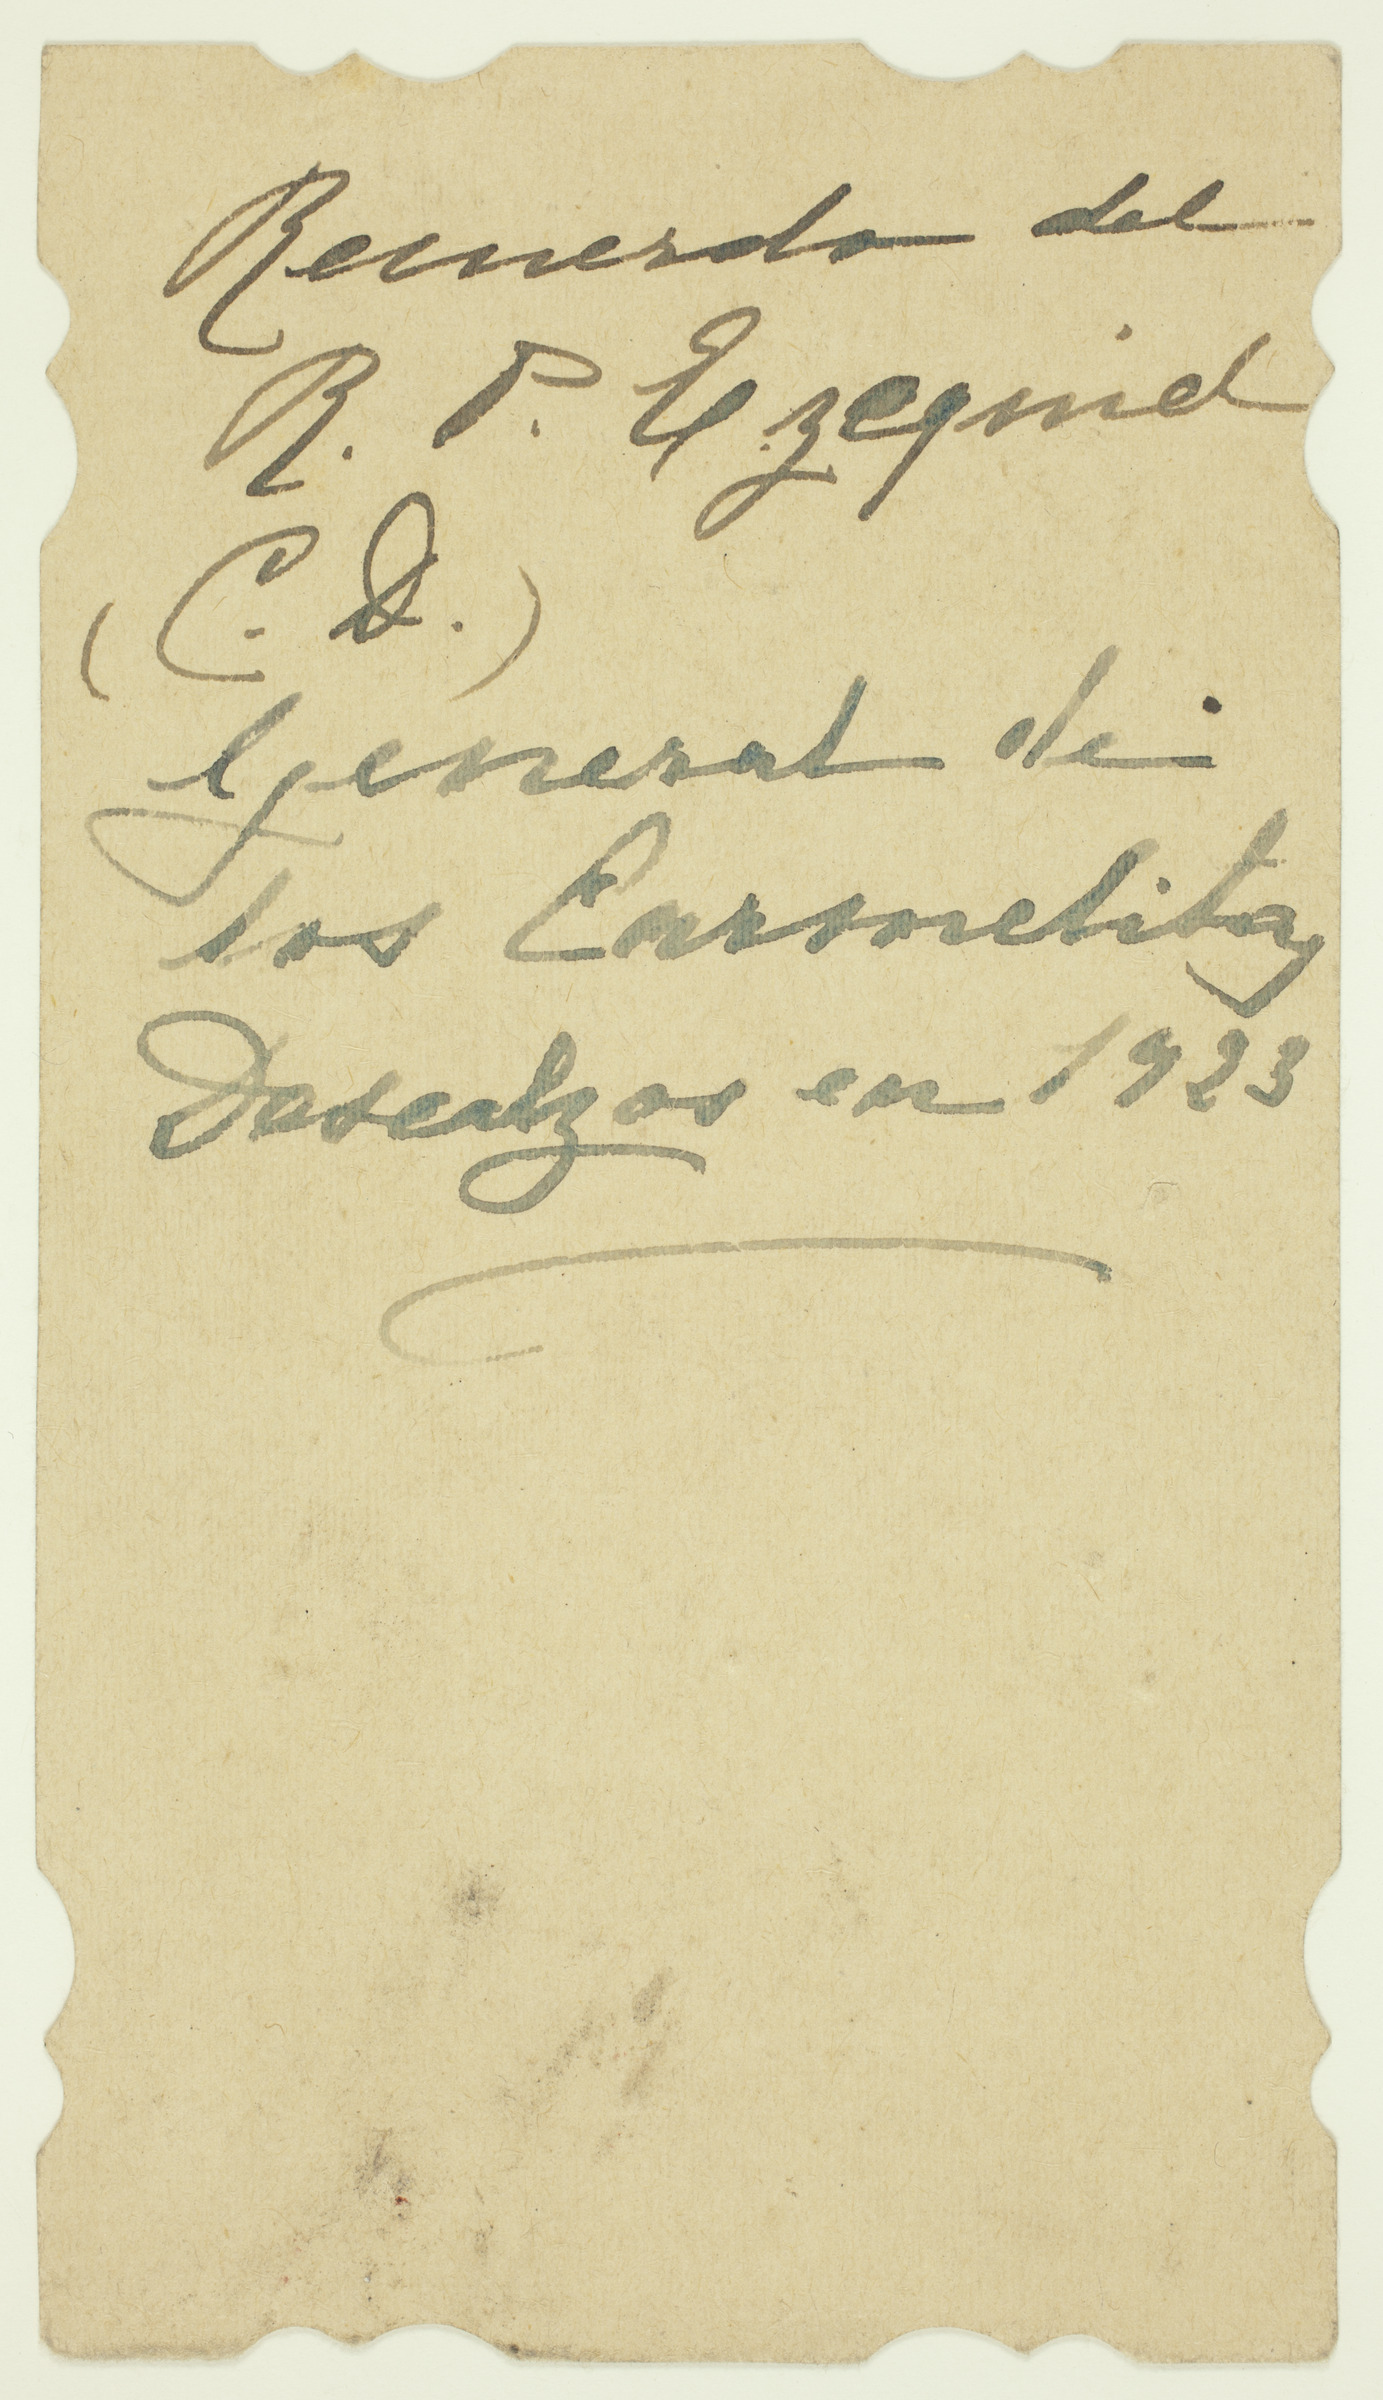 Recuerdo del
R. P. Ezequiel
(C. D.)
General de
los Carmelitas
Descalzos en 1923